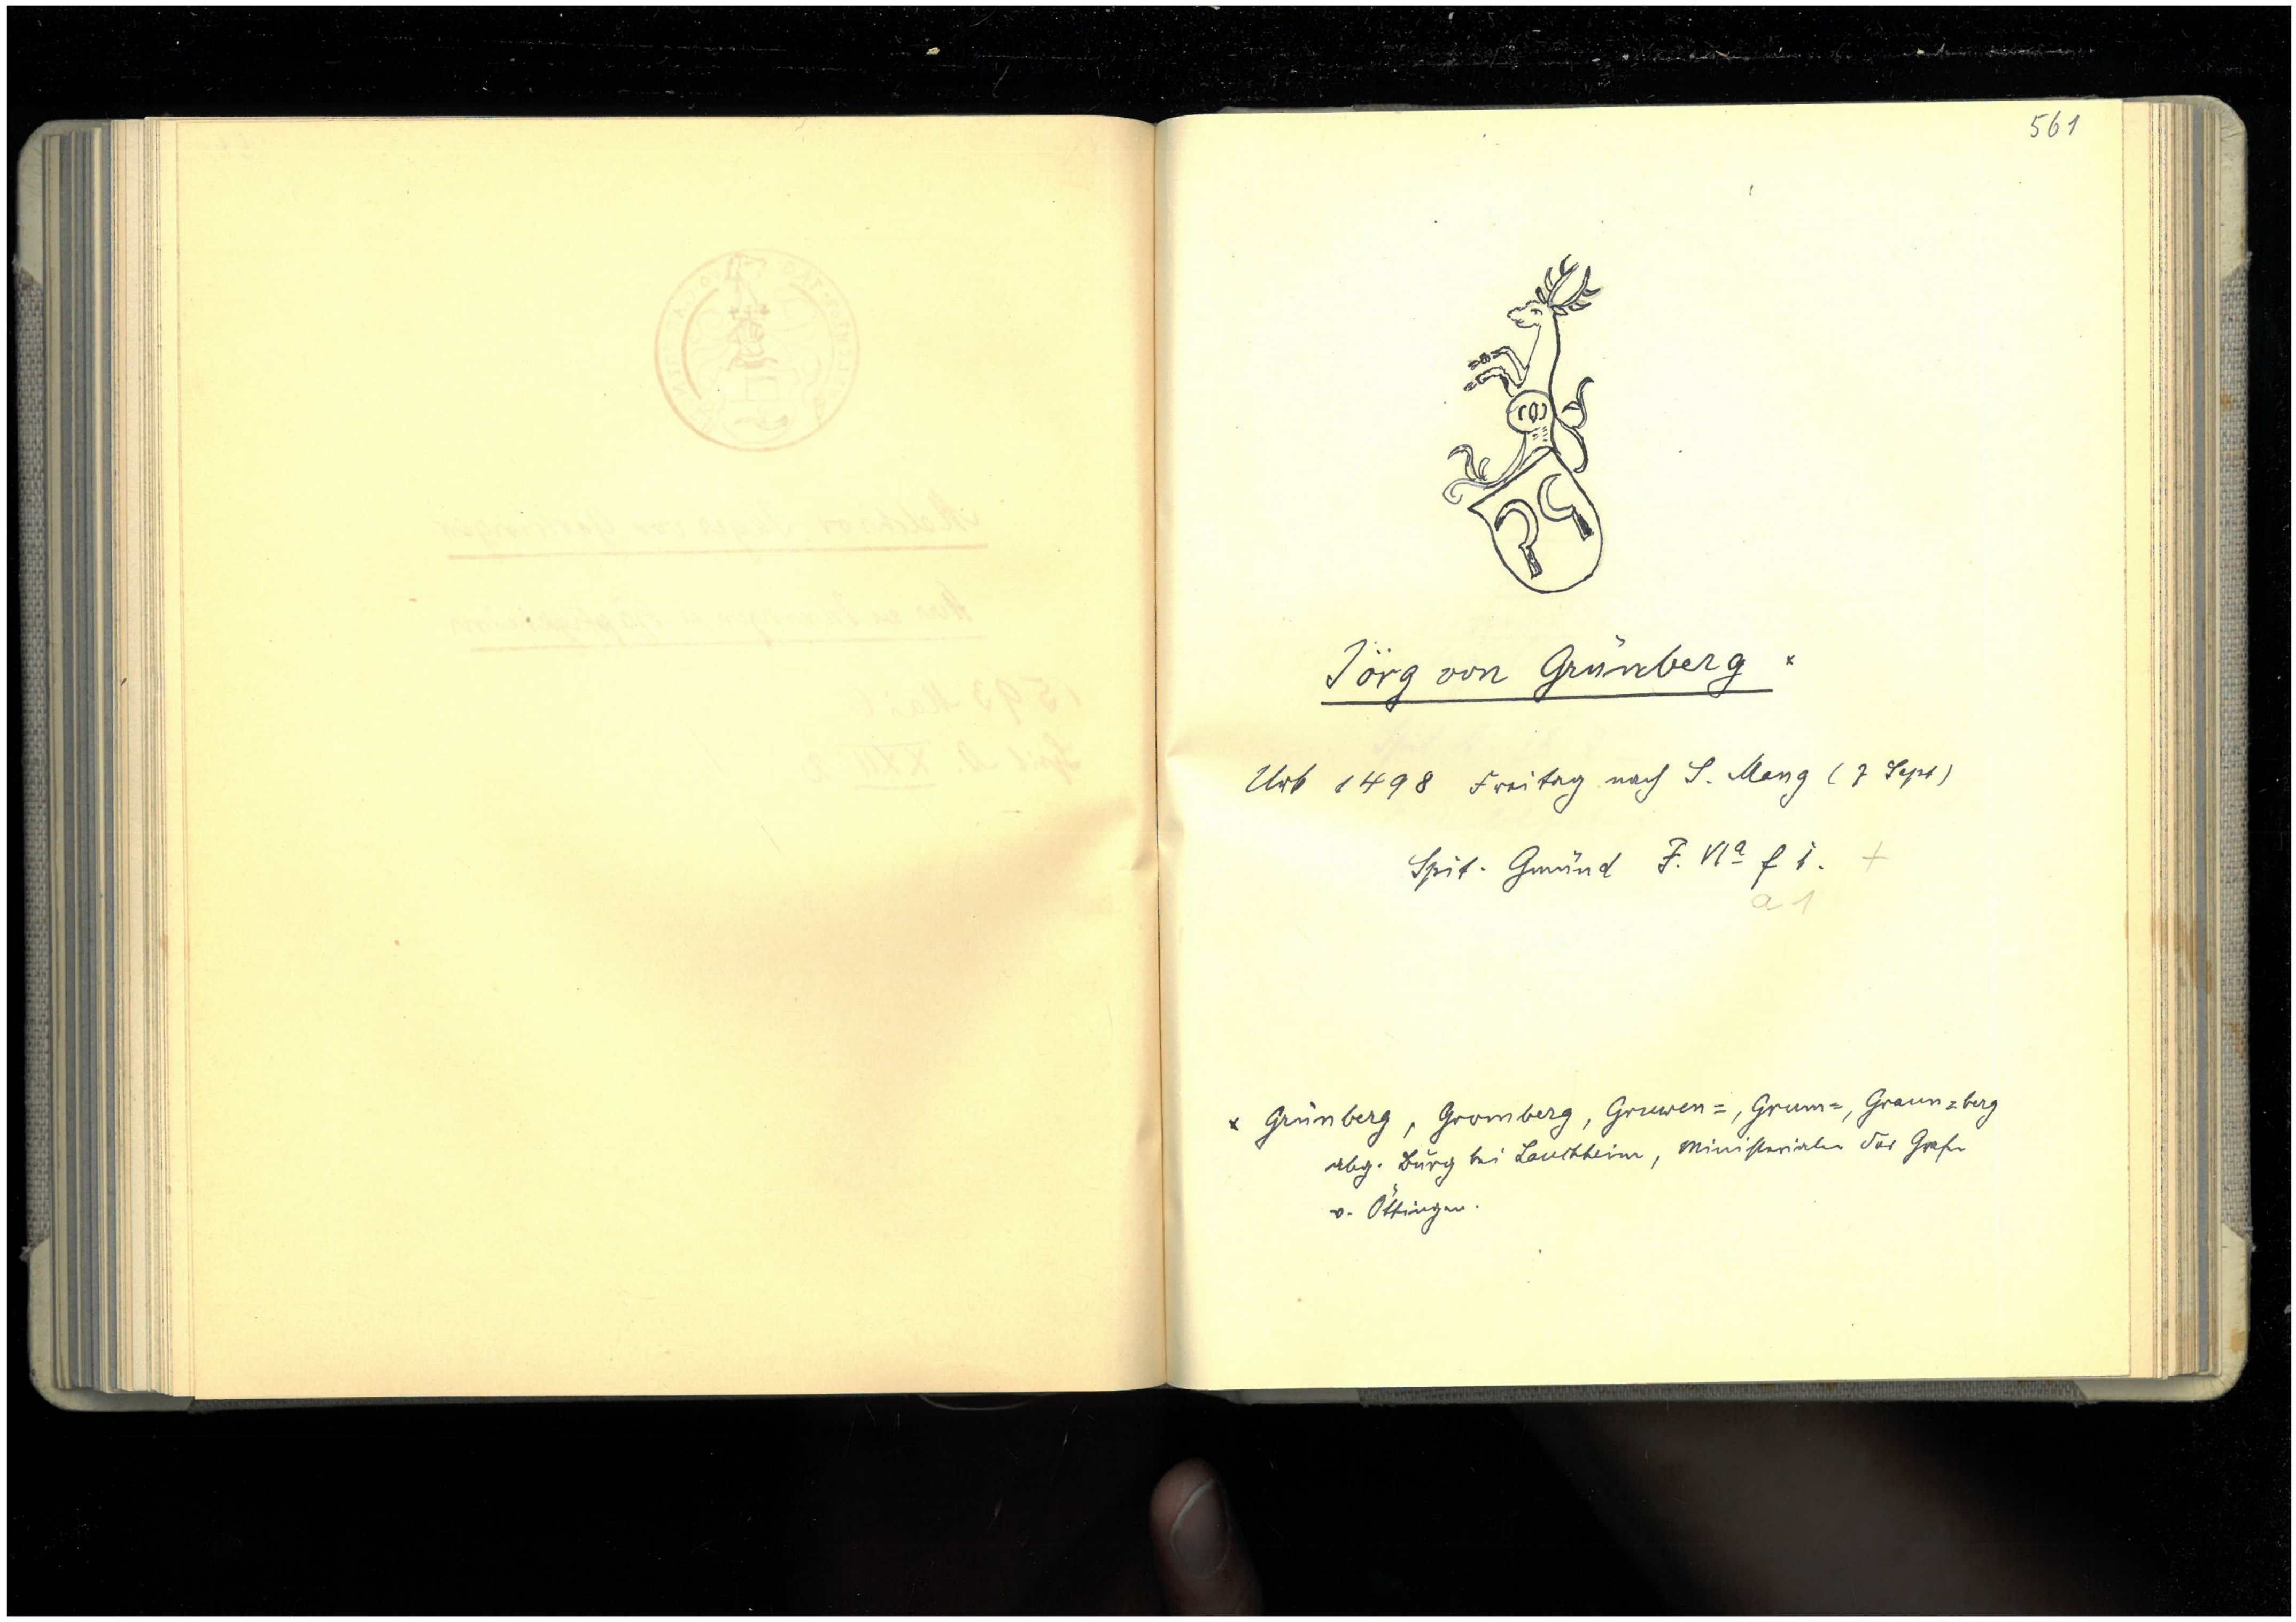 561
Jörg von Grünberg ×
Urk 1498 Freitag nach S. Mang (7 Sept)
Spit. Gmünd F. VIa f 1. +
a 1
× Grünberg, Gromberg, Gruwen=, Grum=, Graun=berg
abg. Burg bei Lauchheim, Ministerialen der Grafen
v. Öttingen.